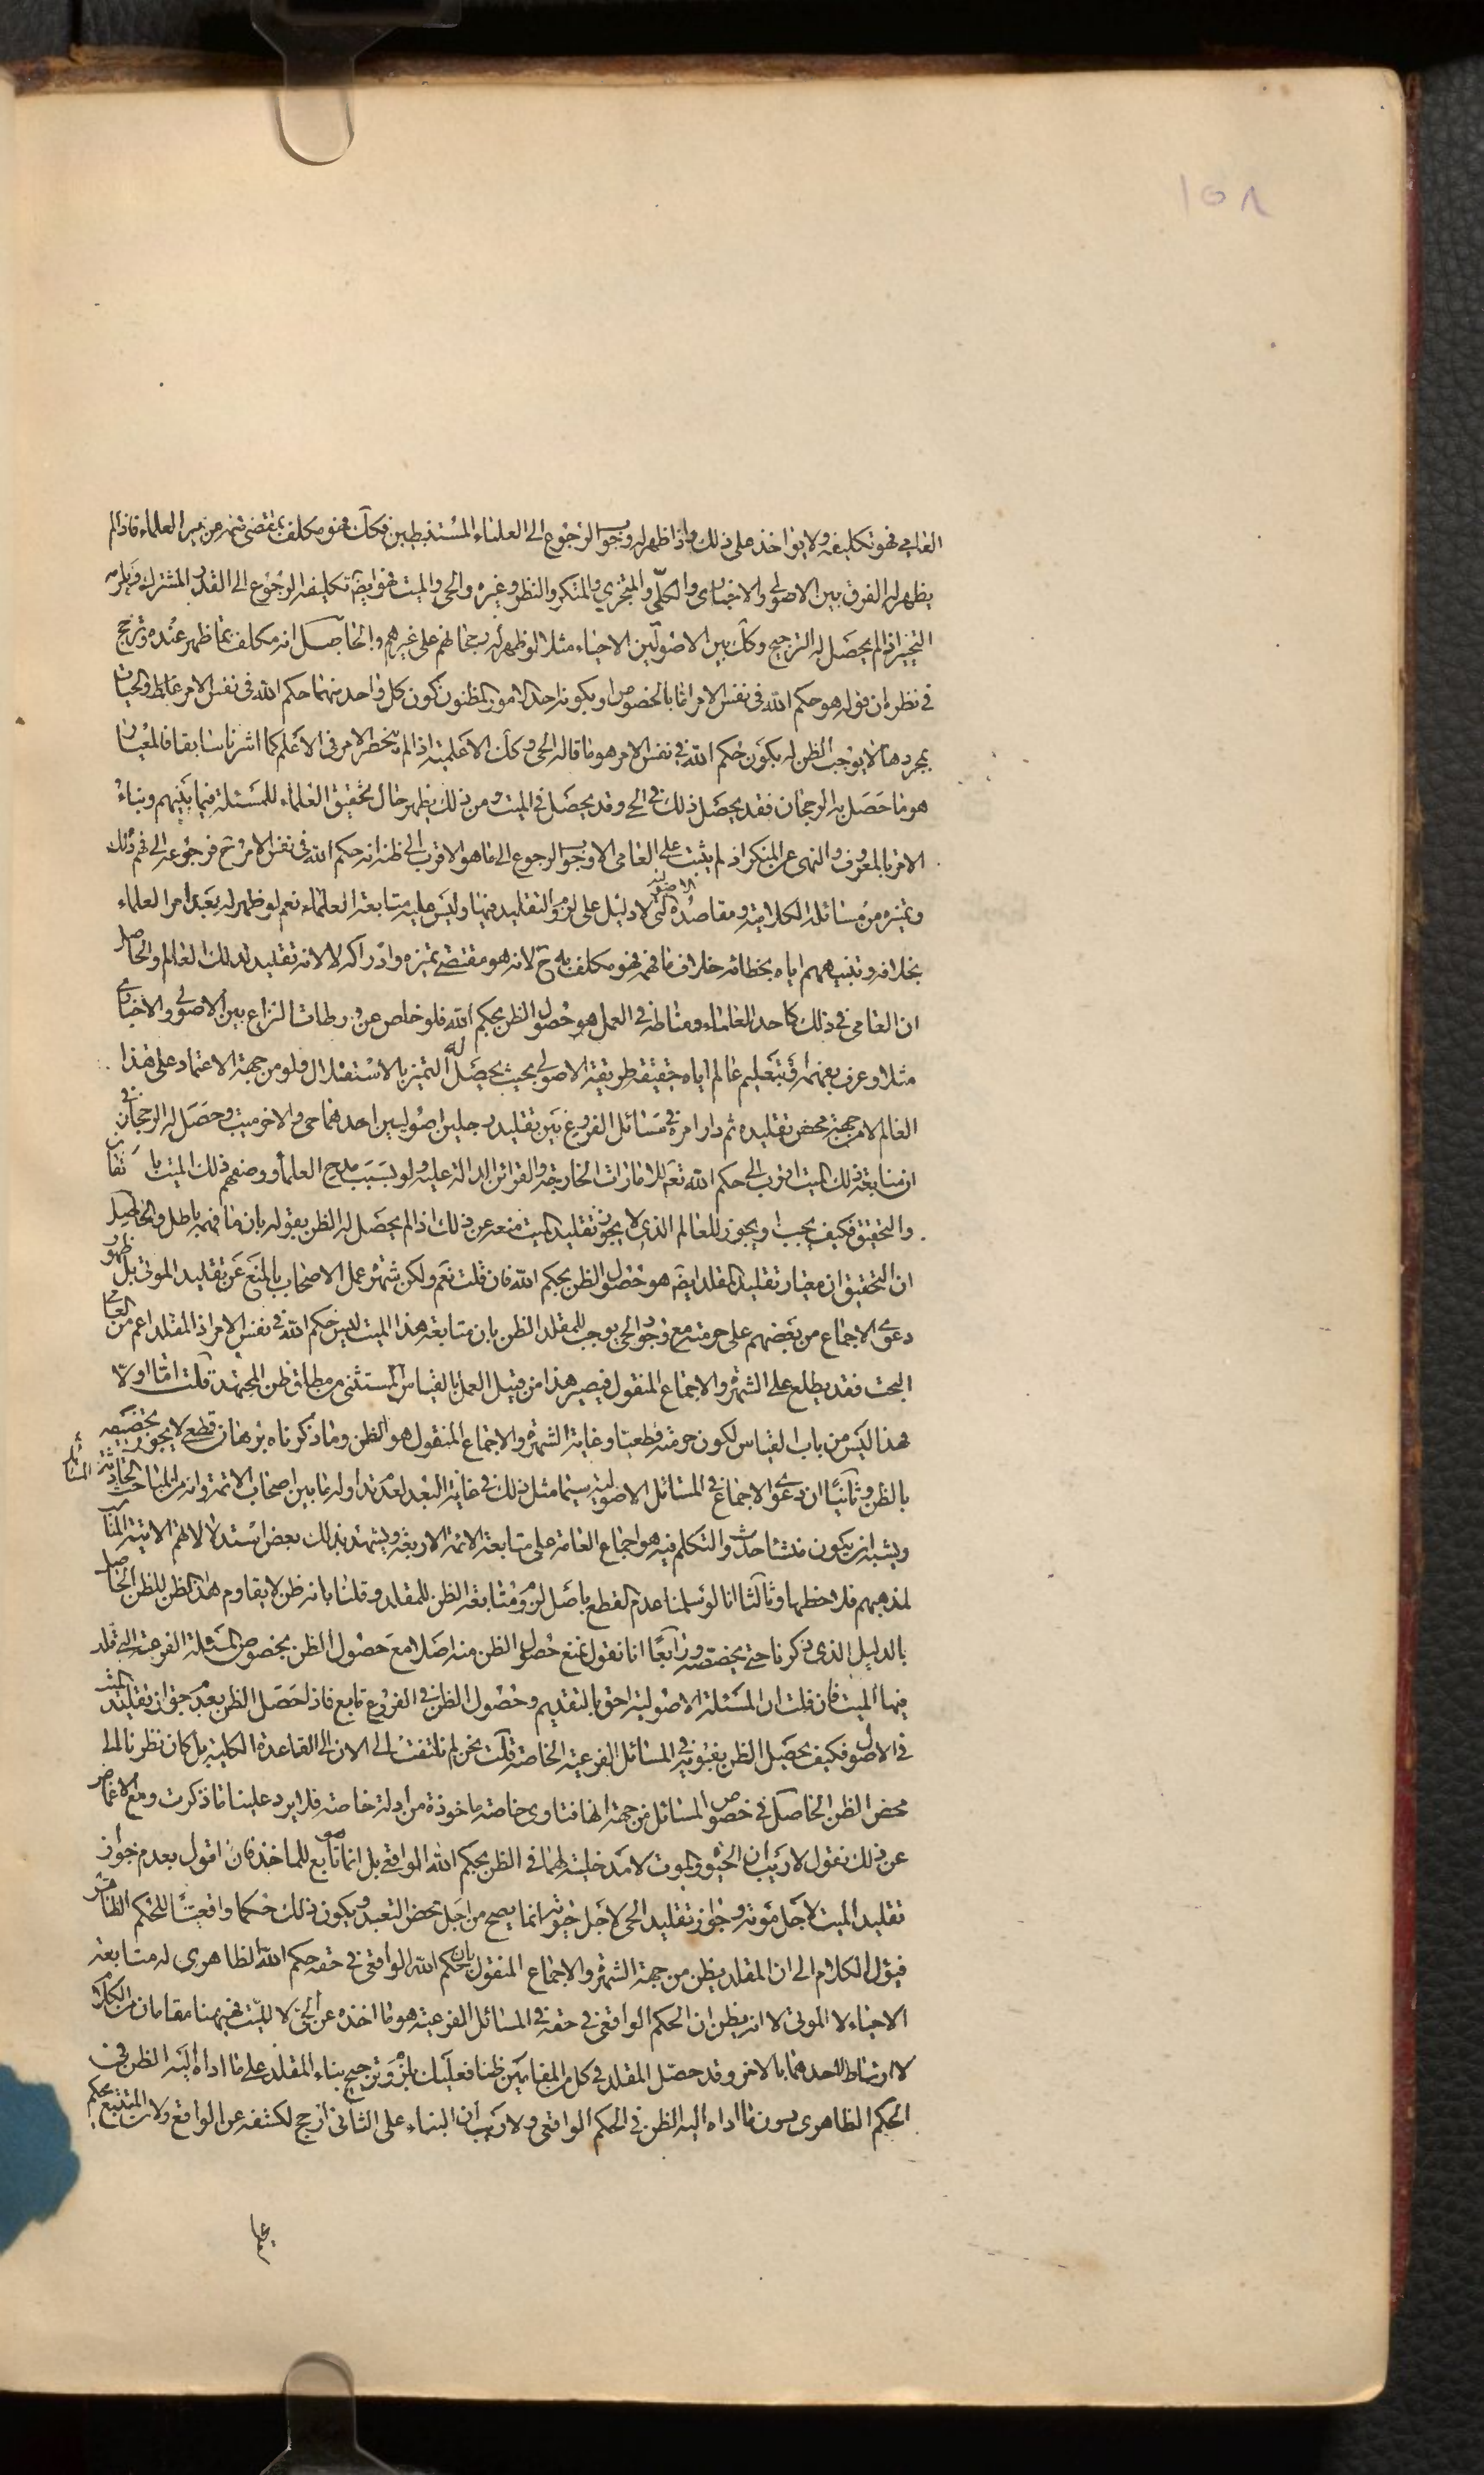 ١٥٨
العامي فهو تكليفه ولا يؤاخذ على ذلك واذا ظهر له وجوب الرجوع الى العلماء المستنبطين فكك فهو مكلف بمقتضى فهمه من بين العلماء فاذا لم
يظهر له الفرق بين الاصولي والاخباري والكلّي والمتجزي والمنكر والنظر وغيره والحي والميت فهو ايضا تكليفه الرجوع الى القدر المشترك ويلزمه
التخيير اذا لم يحصل له الترجيح وكك بين الاصوليّين الاحياء مثلا لو ظهر له رجحانهم على غيرهم والحاصل انه مكلف بما ظهر عنده وترجح
في نظره ان قوله هو حكم الله في نفس الامر اما بالخصوص او بكونه احد الامور المظنون كون كل واحد منهما حكم الله في نفس الامر غالبا والحيات
بمجردها لا يوجب الظن له بكون حكم الله في نفس الامر هو ما قاله الحي وكك الاعلمية اذا لم ينحصر الامر في الاعلم كما اشرنا سابقا فالمعيار
هو ما حصل به الرجحان فقد يحصل ذلك في الحي وقد يحصل في الميت ومن ذلك يظهر حال تحقيق العلماء للمسئلة فيما بينهم وبناء
الامر بالمعروف والنهى عن المنكر اذ لم يثبت على العامي الا وجوب الرجوع الى ما هو الاقرب الى ظنه انه حكم الله في نفس الامر ح فرجوعه الى فهم ذلك
وتميزه من مسائله الكلامية ومقاصده الاصولية التي لا دليل على لزوم التقليد فيها وليس عليه متابعة العلماء نعم لو ظهر له بعد امر العلماء
بخلافه وتنبيههم اياه بخطائه خلاف ما فهمه فهو مكلف به ح لانه هو مقتضى تميزه وادراكه لا لانه تقليد لذلك العالم والحاصل
ان العامي في ذلك كاحد العلماء ومناطه في العمل هو حصول الظن بحكم الله فلو خلص عن ورطات النزاع بين الاصولي والاخباري
مثلا وعرف بفهمه او بتعليم عالم اياه حقيقة طريقة الاصولي بحيث يحصل له التميز بالاستقلال ولو من جهة الاعتماد على هذا
العالم لا من جهة محض تقليده ثم دار امره في مسائل الفروع بين تقليد رجلين اصوليين احدهما حي والاخر ميت وحصل له الرجحان في
ان متابعة ذلك الميت اقرب الى حكم الله تعالى للامارات الخارجة والقرائن الدالة عليه ولو بسبب مدح العلماء ووصفهم ذلك الميت بالاتقان
والتحقيق فكيف يجب او يجوز للعالم الذي لا يجوز تقليد الميت منعه عن ذلك اذا لم يحصل له الظن بقوله بان ما فهمه باطل والحاصل
ان التحقيق ان معيار تقليد المقلد ايضا هو حصول الظن بحكم الله فان قلت نعم ولكن شهرة عمل الاصحاب بالمنع عن تقليد الموتى بل ظهور
دعوى الاجماع من بعضهم على حرمته مع وجود الحي يوجب للمقلد الظن بان متابعة هذا الميت ليس حكم الله في نفس الامر اذ المقلد اعم من العامي
البحت فقد يطلع على الشهرة والاجماع المنقول فيصير هذا من قبيل العمل بالقياس المستثنى من مطلق ظن المجتهد قلت امّا اولا
فهذا ليس من باب القياس لكون حرمته قطعيا وغاية الشهرة والاجماع المنقول هو الظن وما ذكرناه برهان قطعي لا يجوز تخصيصه
بالظن وثانيا ان دعوى الاجماع في المسائل الاصولية سيما مثل ذلك في غاية البعد لعدم تداوله ما بين اصحاب الائمة وانه من المباحث الحادثة المسائل
ويشبه ان يكون منشأ حدوث والتكلم فيه هو اجماع العامة على متابعة الائمة الاربعة ويشهد بذلك بعض استدلالاتهم الاتية المناسبة
لمذهبهم فلاحظها وثالثا انا لو سلمنا عدم القطع باصل لزوم متابعة الظن للمقلد وقلنا بانه ظن لا يقاوم هذا الظن للظن الحاصل
بالدليل الذي ذكرنا حتى يخصصه ورابعا انا نقول نمنع حصول الظن منه اصلا مع حصول الظن بخصوص المسئلة الفرعية التي قلد
فيها الميت فان قلت ان المسئلة الاصولية احق بالتقديم وحصول الظن في الفروع تابع فاذا حصل الظن بعدم جواز تقليد الميت
في الاصول فكيف يحصل الظن بفتويه في المسائل الفرعية الخاصة قلت نحن لم نلتفت الى الان الى القاعدة الكلية بل كان نظرنا الى
محض الظن الحاصل في خصوص المسائل من جهة انها فتاوى خاصة ماخوذة من ادلة خاصة فلا يرد علينا ما ذكرت ومع الاغماض
عن ذلك نقول لا ريب ان الحيوة والموت لا مدخلية لهما في الظن بحكم الله الواقعي بل انما هو تابع للماخذ فان اقول بعدم جواز
تقليد الميت لاجل موته وجواز تقليد الحي لاجل حيوته انما يصح من اجل محض التعبد ويكون ذلك حكما واقعيّا للحكم الظاهري
فيؤل الكلام الى ان المقلد يظن من جهة الشهرة والاجماع المنقول بان حكم الله الواقعي في حقه حكم الله الظاهري له متابعة
الاحياء لا الموتى لا انه يظن ان الحكم الواقعي في حقه في المسائل الفرعية هو ما اخذه عن الحي لا الميّت فهيهنا مقامان من الكلام
لا ارتباط لاحدهما بالاخر وقد حصل المقلد في كل من المقامين ظنا فعليك بلزوم ترجيح بناء المقلد على ما اداه اليه الظن في
الحكم الظاهري دون ما اداه اليه الظن في الحكم الواقعي ولا ريب ان البناء على الثاني ارجح لكشفه عن الواقع ولان المتتبع بحكم